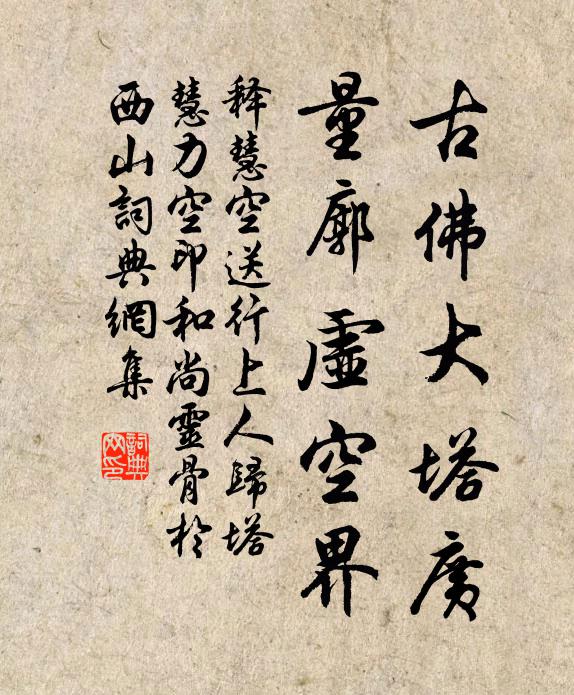 古佛大塔廣
量廓虛空界
释慧空送行上人歸塔
慧力空印和尚靈骨於
西山詞典網集
詞典
网印